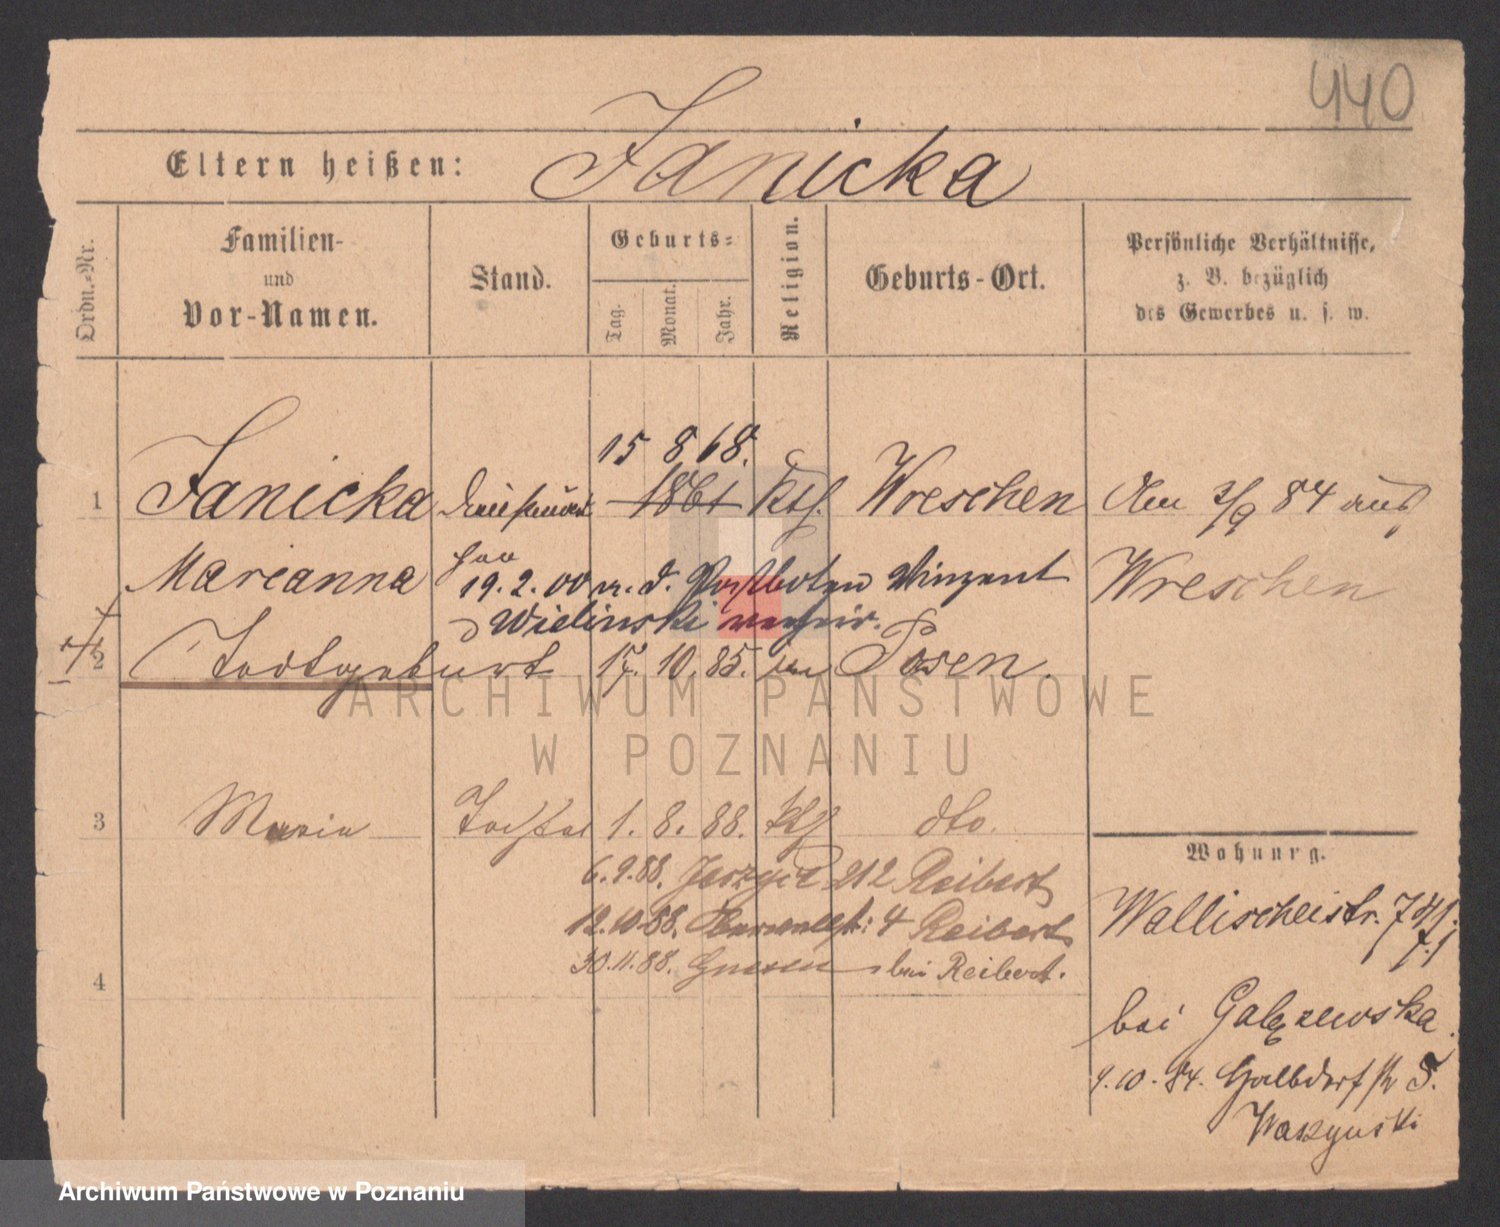 440
Eltern heißen: Janicka
Ordn.-Nr.
Familien-
und
Vor-Namen.
Stand.
Geburts-
Tag.
Monat.
Jahr.
Religion.
Geburts-Ort.
Persönliche Verhältnisse,
z. B. bezüglich
des Gewerbes u. s. w.
15 8 68.
1 Janicka 1861 Kth. Wreschen Am 3/9 84 aus
Marianna Wreschen
19. 2. 00 m. d. Postboten Winzent
Wielinski verheir.
2 Todtgeburt 17. 10. 85. in Posen.
ARCHIWUM PAŃSTWOWE
W POZNANIU
3 Maria Tochter 1. 8. 88. Kth dto.
Wohnung.
6. 9. 88. 212 Reibert
12. 10. 88. 4 Reibert
30. 11. 88. Gnesen bei Reibert.
4
Wallischeistr.
bei
9. 10. 84. Halbdorfstr 5.
Archiwum Państwowe w Poznaniu